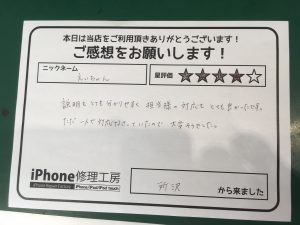 本日は当店をご利用頂きありがとうございます!
ご感想をお願いします!
ニックネーム
えいちゃん
星評価
★★★★☆
説明もとても分かりやすく 担当様の対応も とても良かったです。
ただ一人で対応されていたので、大変そうでした。
iPhone修理工房
iPhone Repair Factory
iPhone/iPad/iPod touch
所沢
から来ました